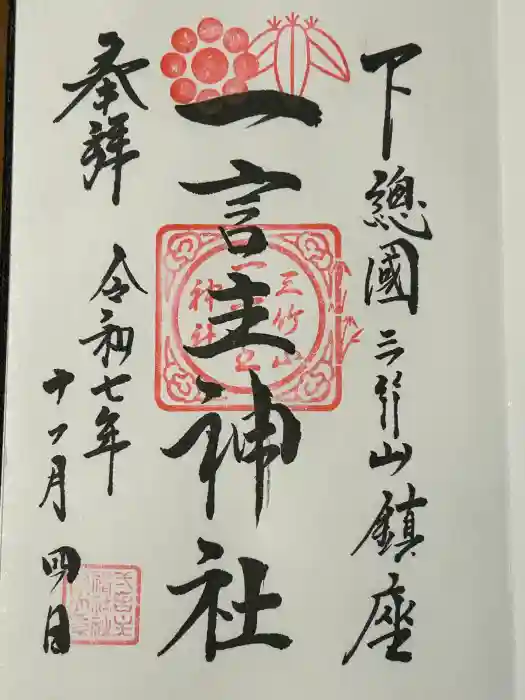 下總國三竹山鎮座
一言主神社
三竹山
一言主
神社
奉拜
令和七年
十一月四日